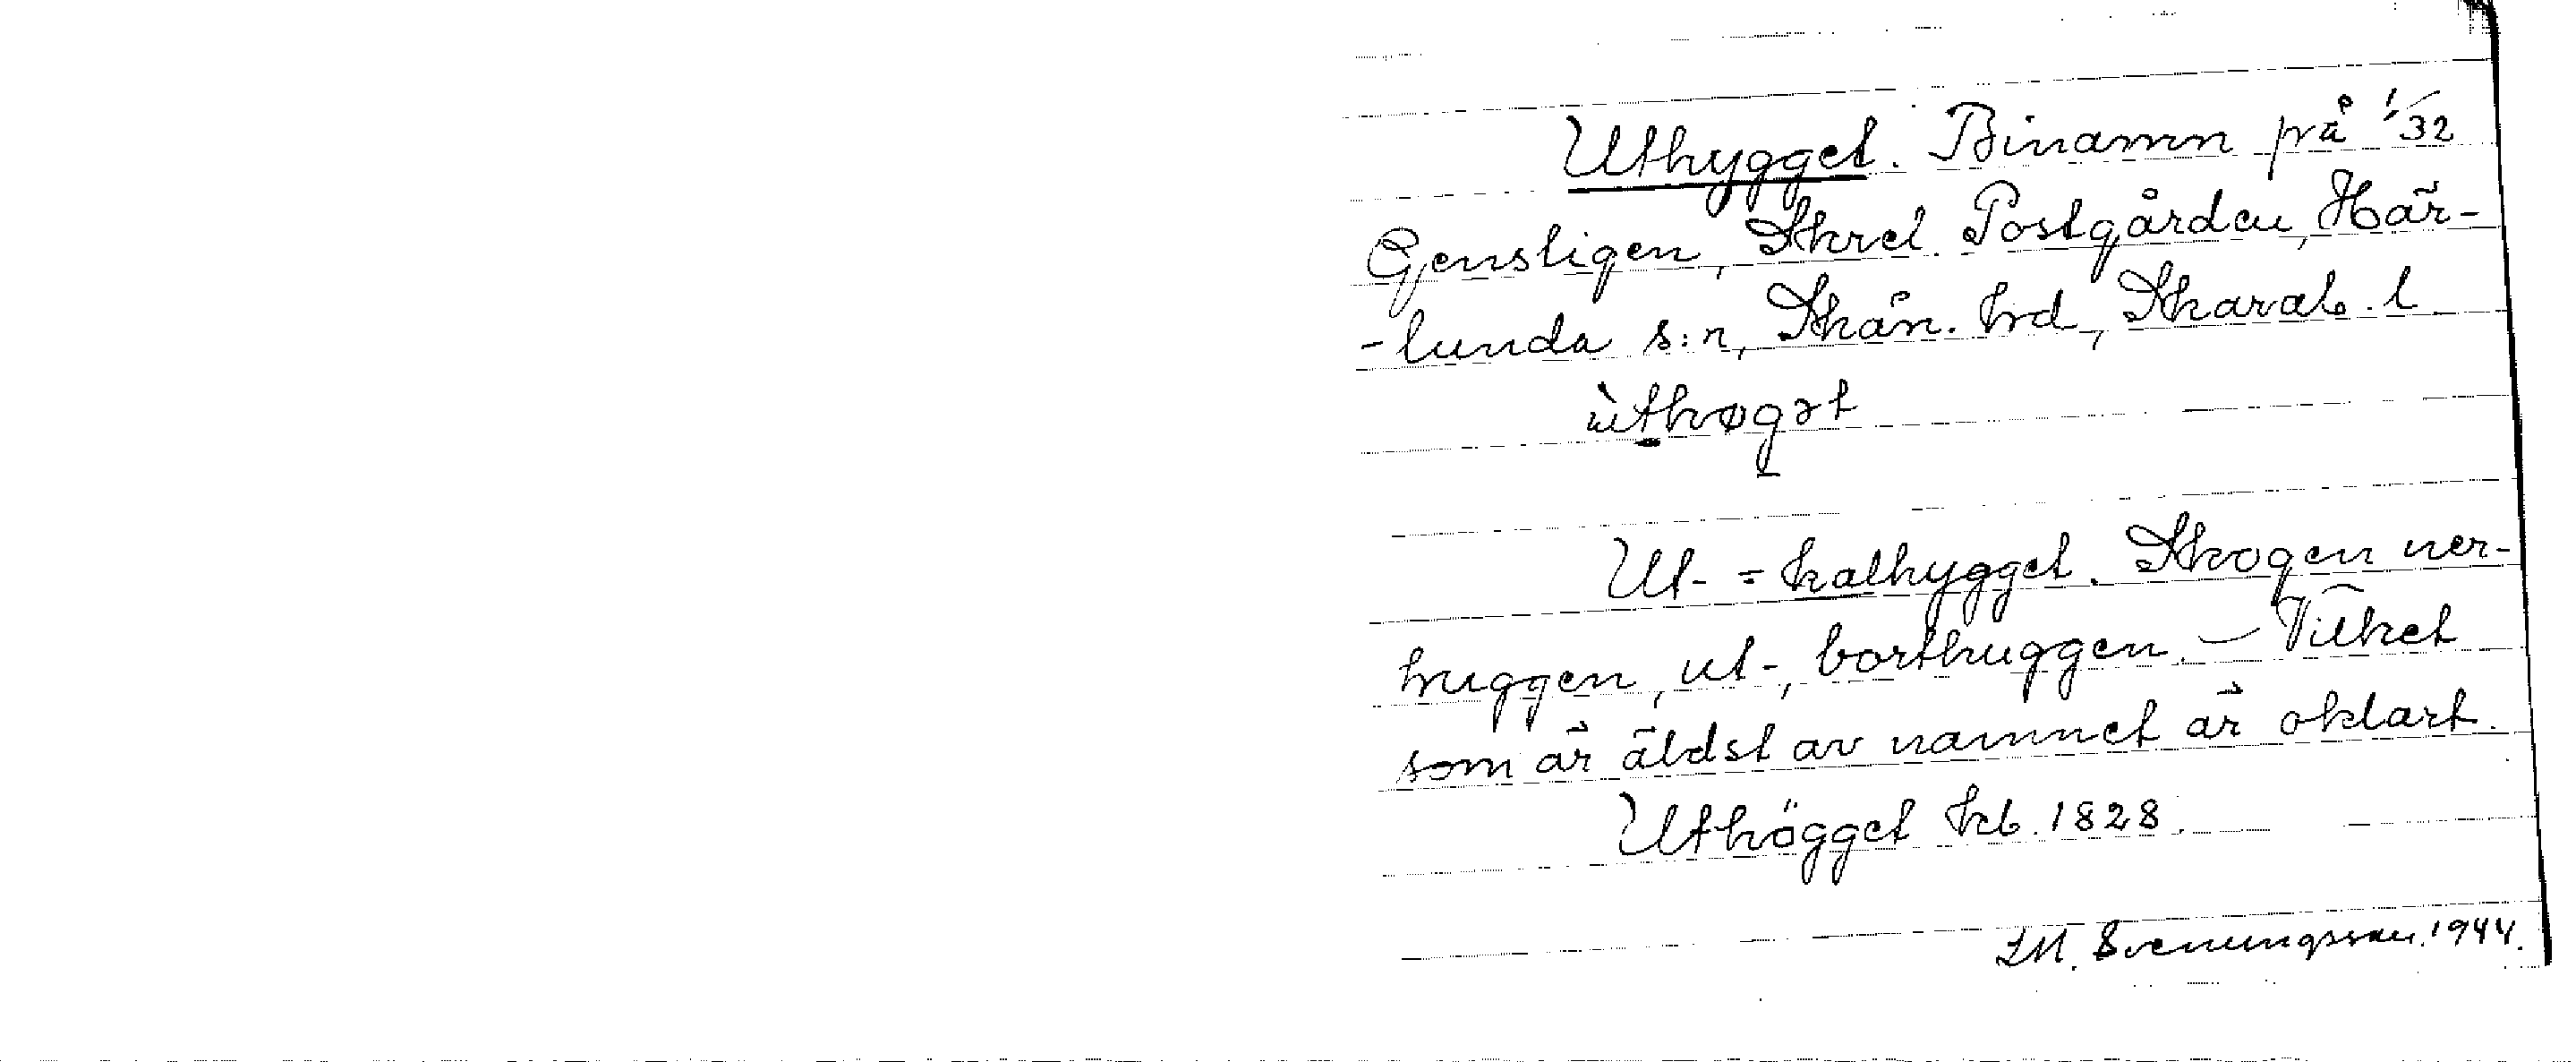 Uthygget. Binamn på 1/32
Genstigen, Skrel. Postgården, Här-
-lunda s:n, Skån. hrd, Skarab. l
ùthøgət
Ut- = kalhygget. Skogen ner-
huggen, ut-, borthuggen. – Vilket
som är äldst av namnet är oklart.
Uthögget kb. 1828.
Svenungsson. 1944.